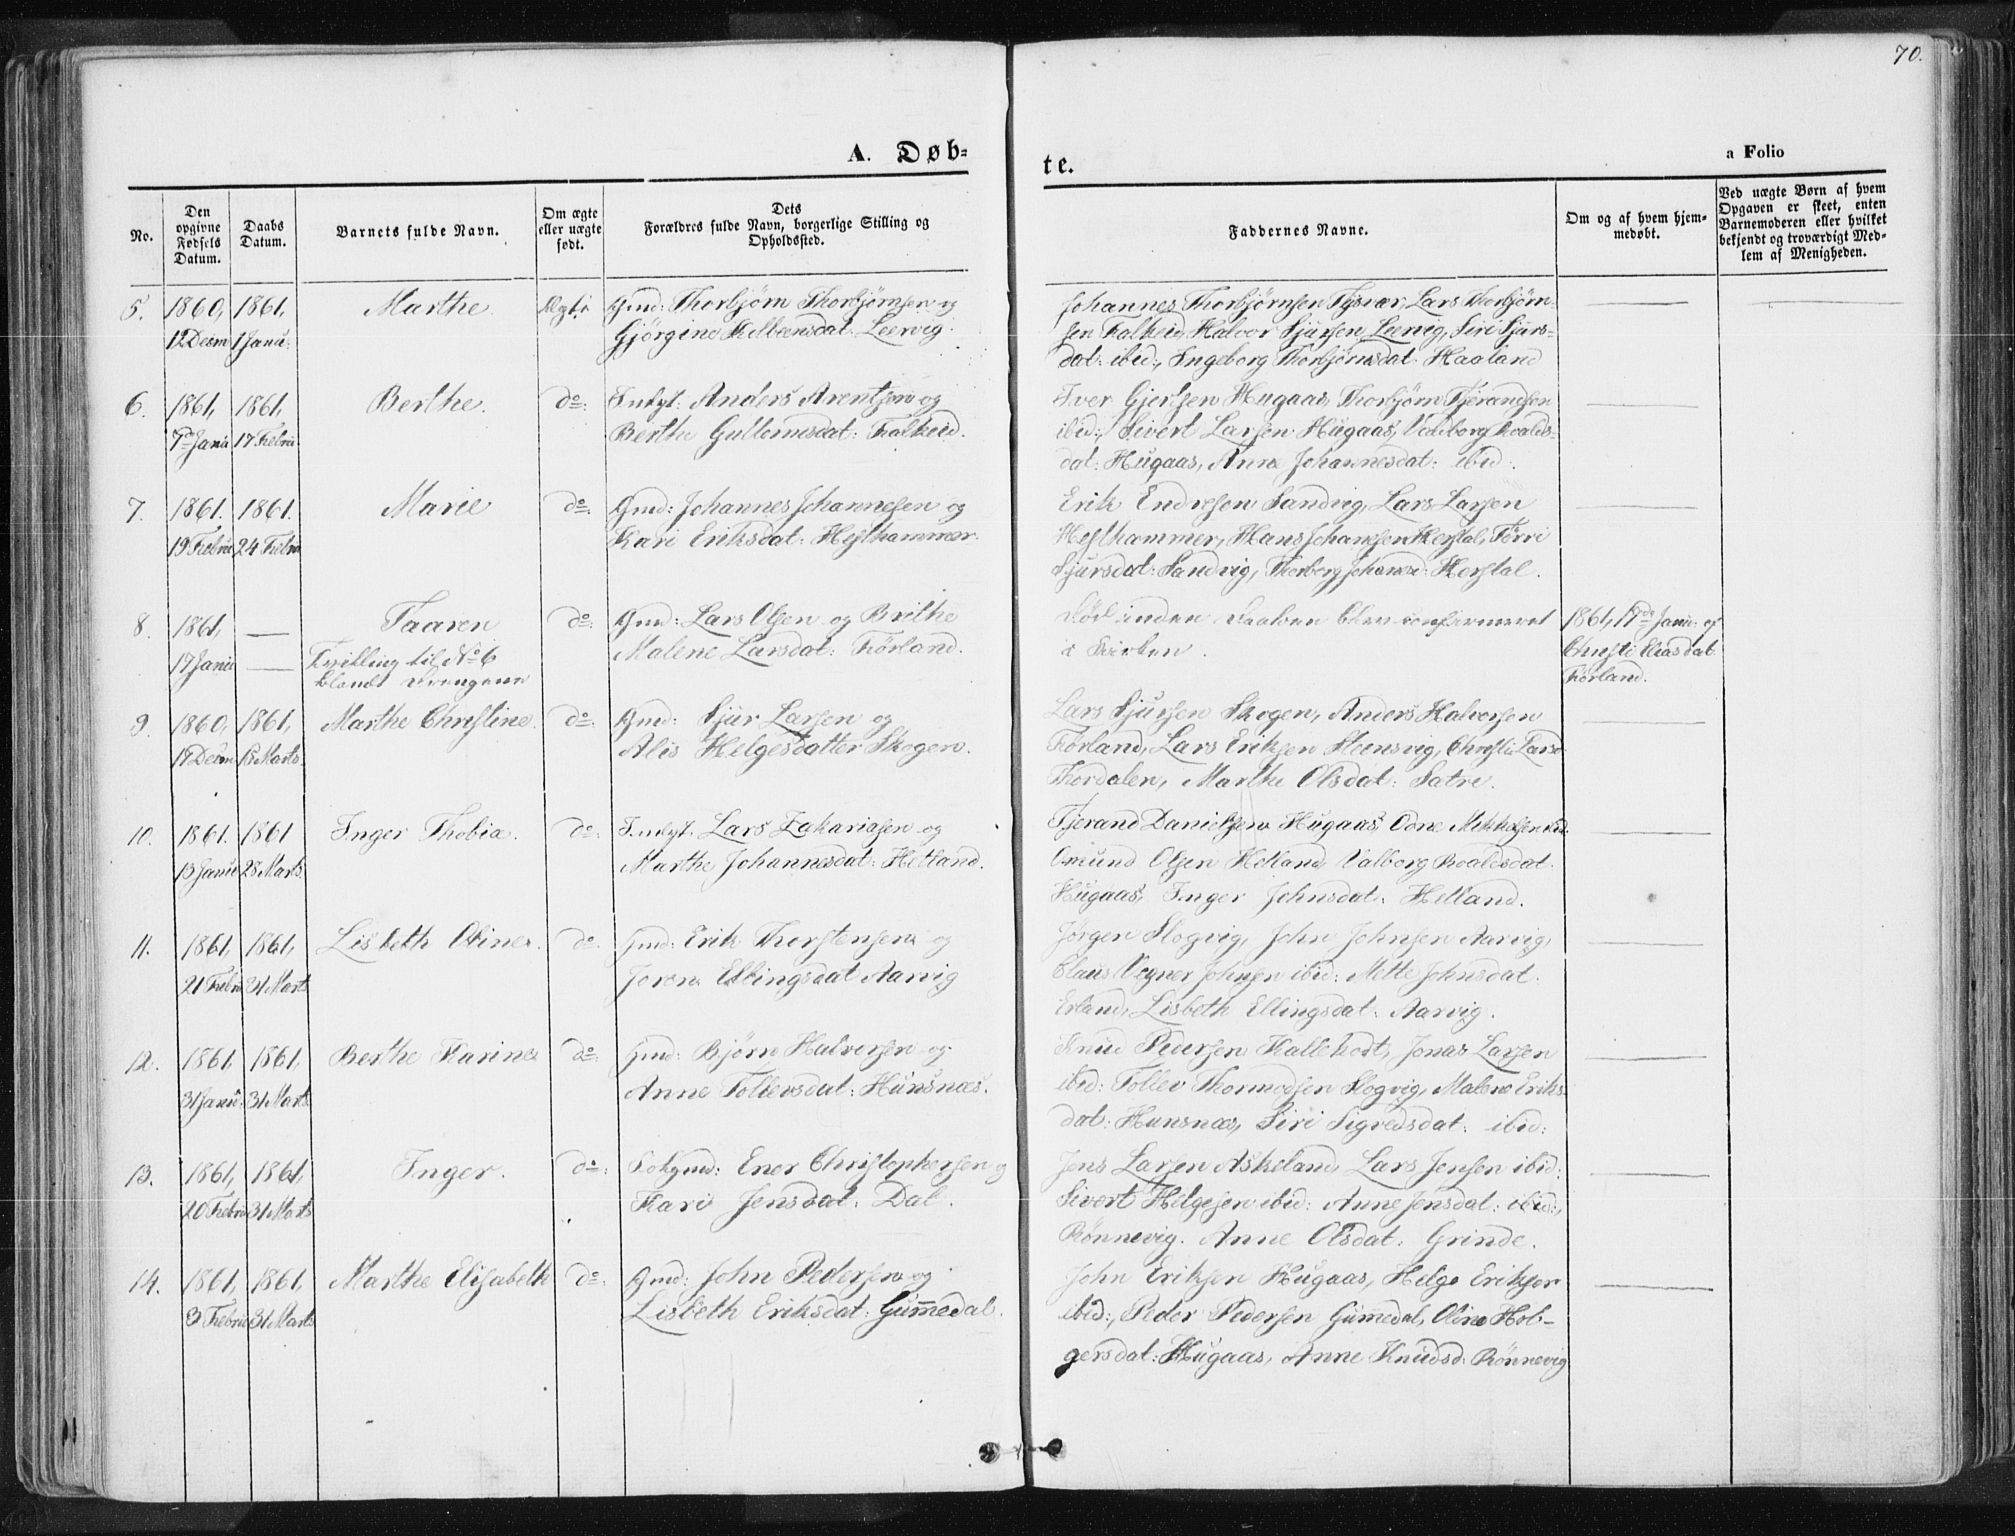 70.
A. Døb-
te.
a Folio
No.
Den opgivne Fødsels Datum.
Daabs Datum.
Barnets fulde Navn.
Om ægte eller uægte født.
Dets Forældres fulde Navn, borgerlige Stilling og Opholdssted.
Faddernes Navne.
Om og af hvem hjemmedøbt.
Ved uægte Børn af hvem Opgaven er skeet, enten Barnemoderen eller hvilket bekjendt og troværdigt Medlem af Menigheden.
5. 1860, 1861, Marthe. Ægte Gmd: Thorbjørn Thorbjørnsen og
12 Decm 1 Janu: Gjørgine dat: Leervig.
Johannes Thorbjørnsen Tysvær, Lars Thorbjørn-
sen Falkeid, Halvor Sjursen Leervig, Siri Sjurs-
dat: ibid:, Ingeborg Thorbjørnsdat: Haaland
6. 1861, 1861, Berthe. do: Indst: Anders Arentsen og
7de Janu 17 Febru Berthe Guttormsdat: Falkeid.
Iver Gjertsen Hugaas, Thorbjørn Tjerandsen
ibid:, Sivert Larsen Hugaas, Valborg Roalds-
dat: Hugaas, Anna Johannesdat: ibid.
7. 1861. 1861. Marie do: Gmd: Johannes Johannesen og
19 Febru 24 Febru Kari Eriksdat: Hesthammer.
Erik Endresen Sandvig, Lars Larsen
Hesthammer, Hans Johansen Herstal, Tørri
Sjursdat: Sandvig, Thorberg Johansd: Herstal.
8. 1861, — Taaren do: Gmd: Lars Olsen og Brithe
17 Janu — Tvilling til No 6 Malene Larsdat: Førland.
blandt Drengene
Død inden Daaben blev confirmeret
i Kirken.
1861, 17de Janu: af
Christi Eliasdat
Førland.
9. 1860, 1861, Marthe Christine. do: Gmd: Sjur Larsen og
17 Decm Marts Alis Helgesdatter Skogen.
Lars Sjursen Skogen, Anders Halvorsen
Førland, Lars Eriksen Steensvig, Christi Larsd
Thordalen, Marthe Olsdat: Satre.
10. 1861. 1861 Inger Thobia. do: Indst. Lars Zakariasen og
13 Janu 28 Marts. Marthe Johannesdat: Hetland.
Tjerand Danielsen Hugaas, Odne Mikkelsen ibid.
Omund Olsen Hetland, Valborg Roaldsdat.
Hugaas, Inger Johnsdat: Hetland.
11. 1861, 1861, Lisbeth Oline. do. Gmd: Erik Thorstensen og
21 Febru 31 Mart. Joren Ellingsdat Aarvig
Jørgen Slogvig, John Johnsen Aarvig,
Claus Johnsen ibid: Mette Johnsdat.
Erland, Lisbeth Ellingsdat: Aarvig.
12. 1861 1861, Berthe Karine do: Gmd: Bjørn Halvorsen og
31 Janu. 31 Marts. Anne Tollevsdat: Hunsnæs.
Knud Pedersen Kallekodt, Jonas Larsen
ibid: Tollev Thormodsen Slogvig, Malene Eriks-
dat: Hunsnæs, Siri Sigvedsdat: ibid:
13. 1861, 1861, Inger. do: Ener Christophersen og
20 Febru 31 Marts Kari Jensdat: Dal.
Jens Larsen Askeland, Lars Jensen ibid:
Sivert Helgesen ibid: Anne Jensdat: ibid:,
Rønnevig. Anne Olsdat: Grinde.
14. 1861, 1861, Marthe Elisabeth do: Gmd: John Pedersen og
3 Febru 31 Marts Lisbeth Eriksdat: Gum̄edal.
John Eriksen Hugaas, Helge Eriksen
ibid:, Peder Pedersen Gum̄edal, Oline Hol-
gersdat: Hugaas, Anne Knudsd: Rønnevig